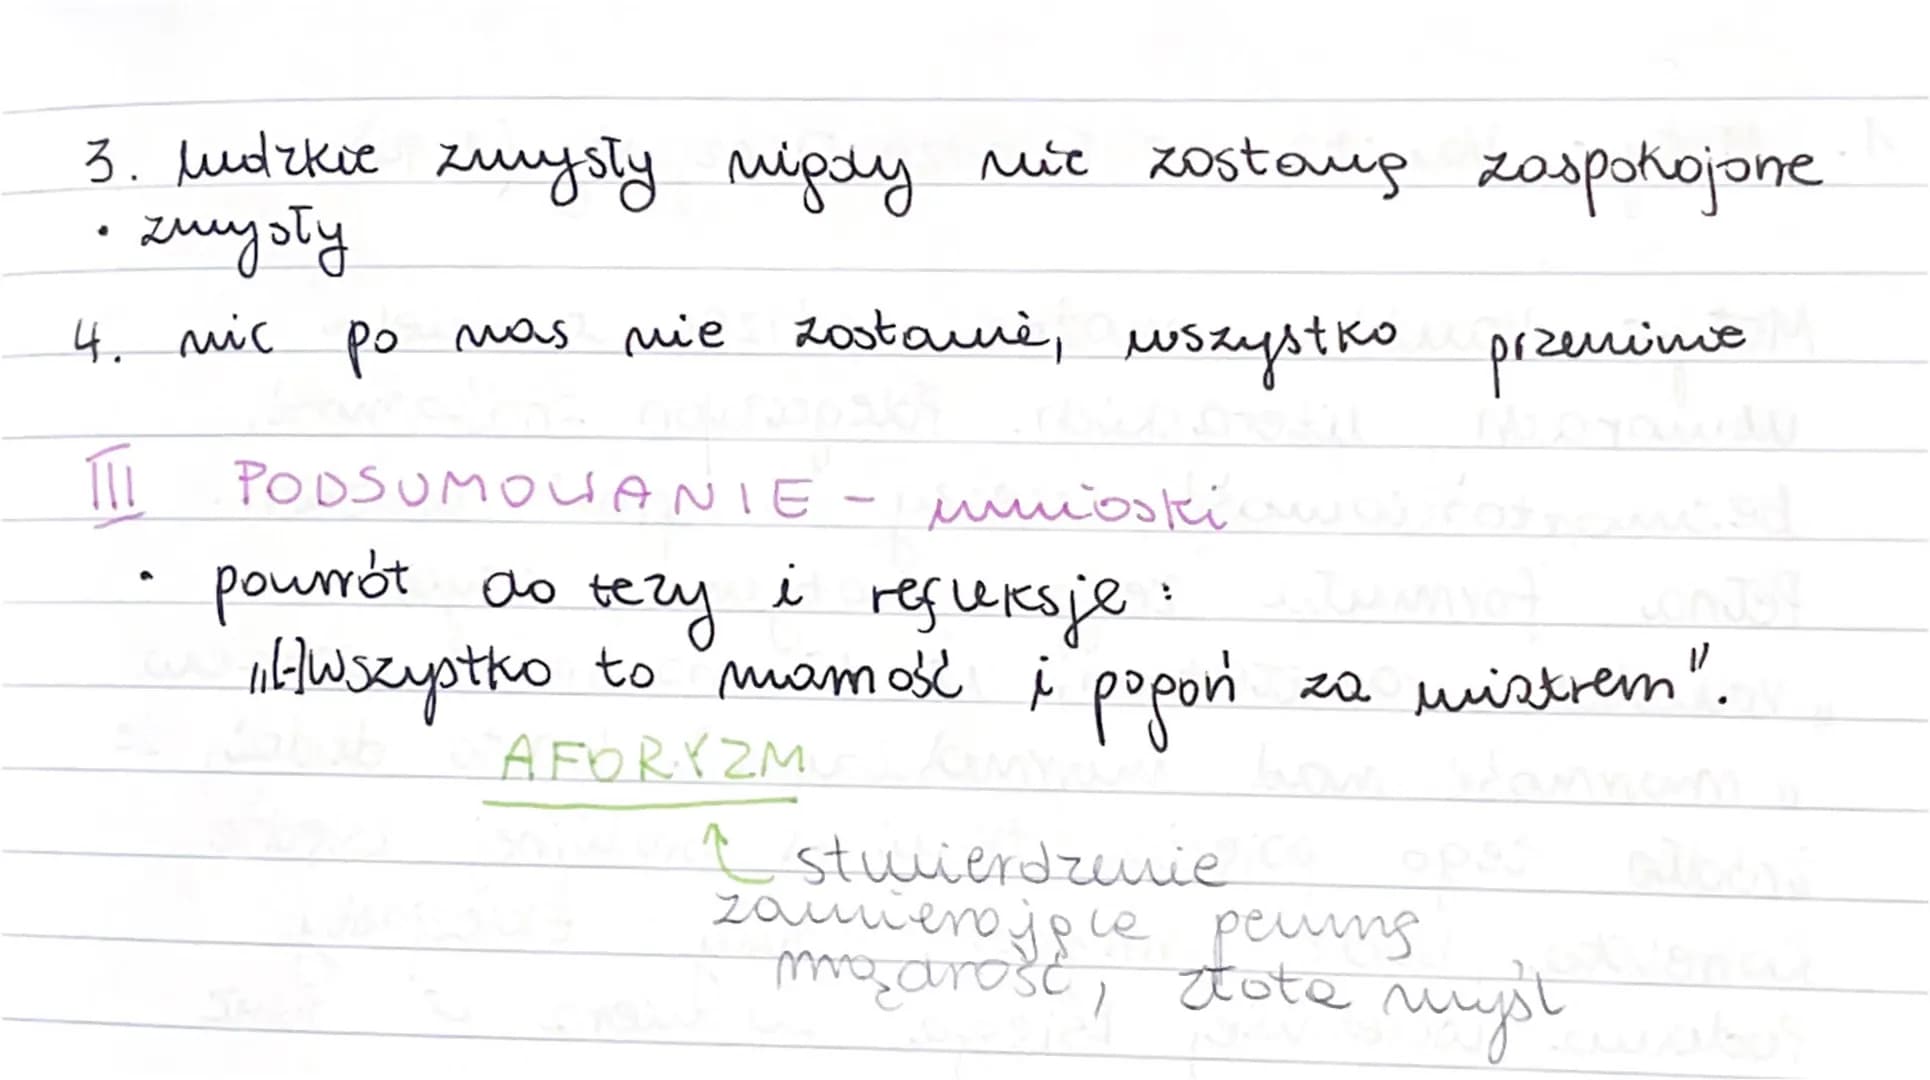 3. ludzkie zmysły nigdy nie zostaną zaspokojone
• zmysły
4. nic po nas nie zostanie, wszystko przeminie
III PODSUMOWANIE - wnioski
• powrót do tezy i refleksje:
„[-]Wszystko to marność i pogoń za wiatrem".
AFORYZM
stwierdzenie
zawierające pewną
mądrość, złota myśl